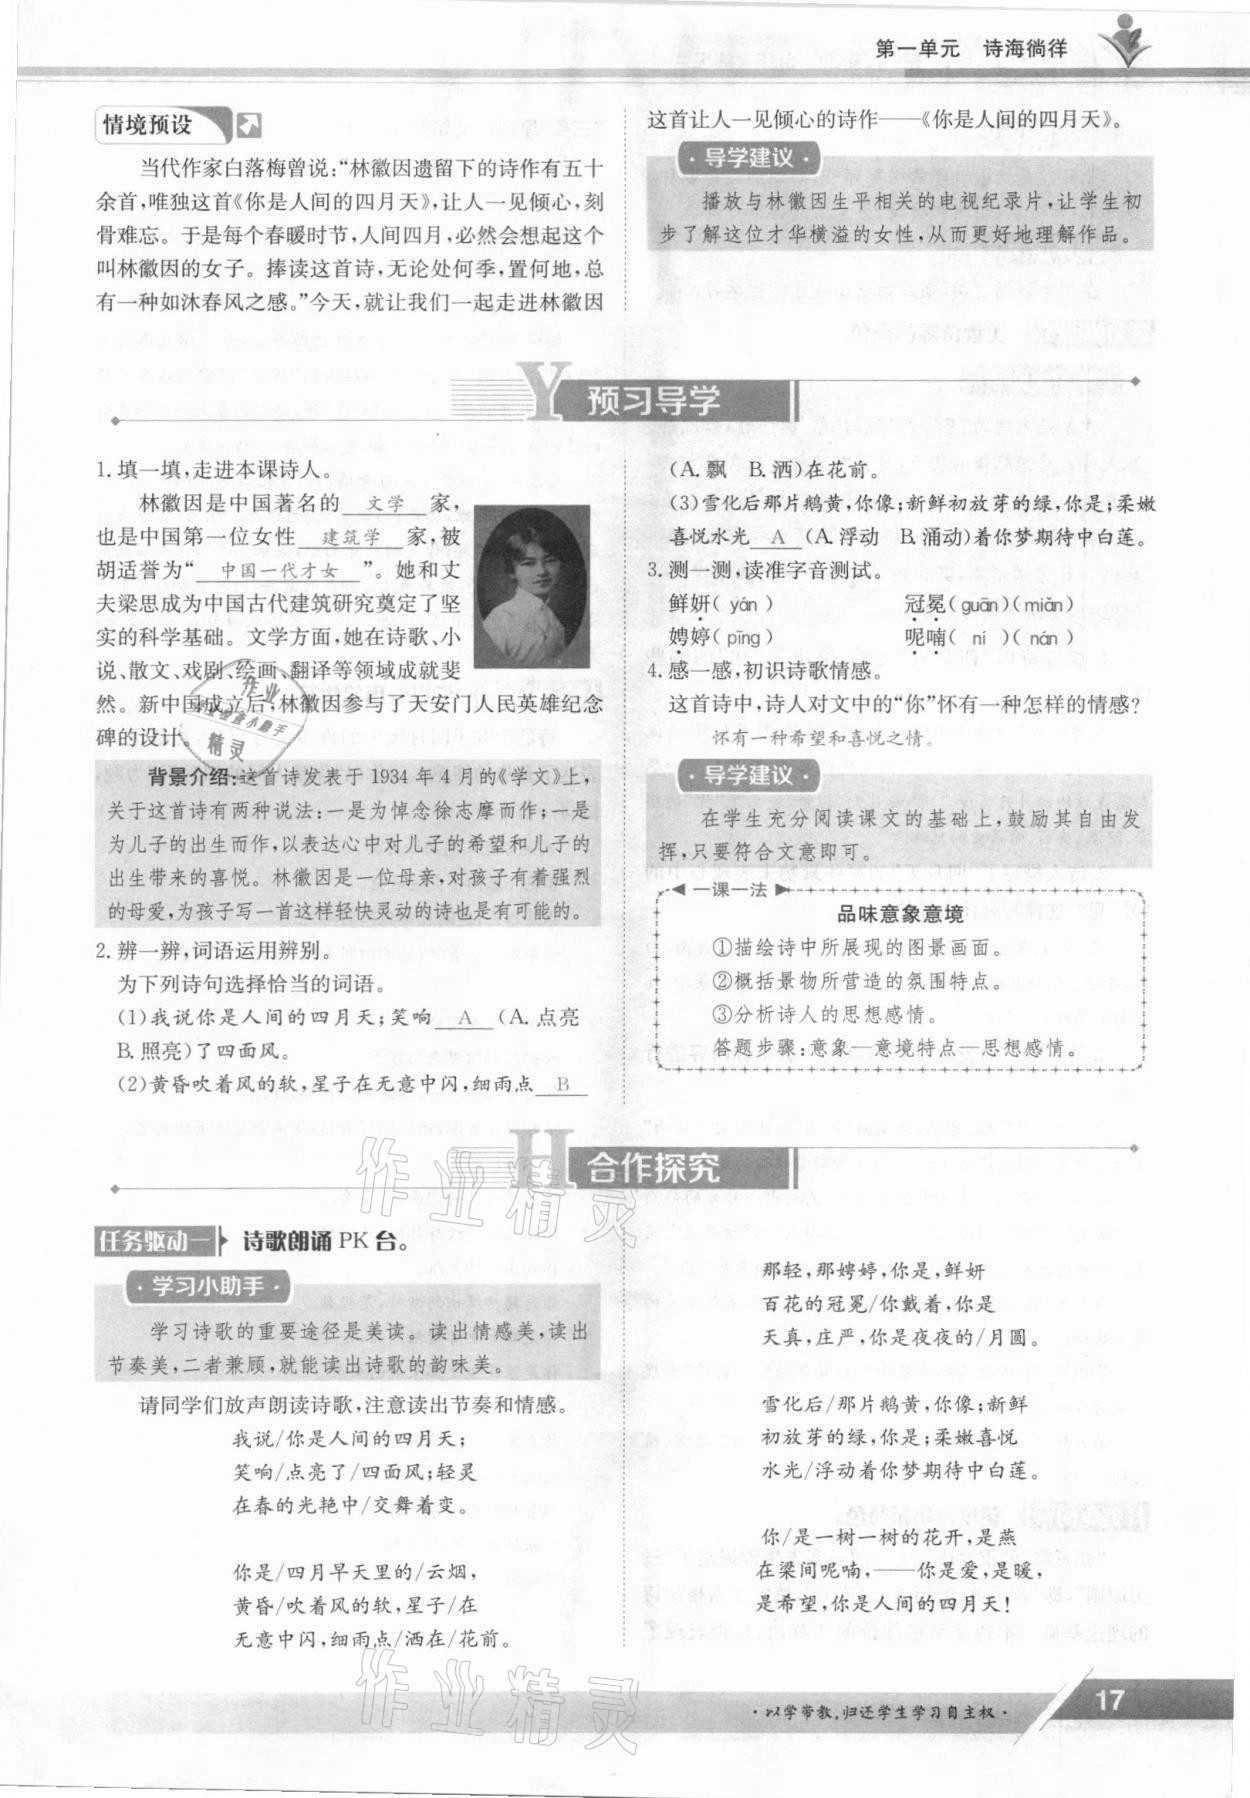 第一单元 诗海徜徉
情境预设
当代作家白落梅曾说:“林徽因遗留下的诗作有五十
余首,唯独这首《你是人间的四月天》,让人一见倾心,刻
骨难忘。于是每个春暖时节,人间四月,必然会想起这个
叫林徽因的女子。捧读这首诗,无论处何季,置何地,总
有一种如沐春风之感。”今天,就让我们一起走进林徽因
这首让人一见倾心的诗作——《你是人间的四月天》。
·导学建议·
播放与林徽因生平相关的电视纪录片,让学生初
步了解这位才华横溢的女性,从而更好地理解作品。
Y 预习导学
1. 填一填,走进本课诗人。
林徽因是中国著名的 文学 家,
也是中国第一位女性 建筑学 家,被
胡适誉为“ 中国一代才女 ”。她和丈
夫梁思成为中国古代建筑研究奠定了坚
实的科学基础。文学方面,她在诗歌、小
说、散文、戏剧、绘画、翻译等领域成就斐
然。新中国成立后,林徽因参与了天安门人民英雄纪念
碑的设计。
背景介绍:这首诗发表于 1934 年 4 月的《学文》上,
关于这首诗有两种说法:一是为悼念徐志摩而作;一是
为儿子的出生而作,以表达心中对儿子的希望和儿子的
出生带来的喜悦。林徽因是一位母亲,对孩子有着强烈
的母爱,为孩子写一首这样轻快灵动的诗也是有可能的。
2. 辨一辨,词语运用辨别。
为下列诗句选择恰当的词语。
(1)我说你是人间的四月天;笑响 A (A. 点亮
B. 照亮)了四面风。
(2)黄昏吹着风的软,星子在无意中闪,细雨点 B
(A. 飘 B. 洒)在花前。
(3)雪化后那片鹅黄,你像;新鲜初放芽的绿,你是;柔嫩
喜悦水光 A (A. 浮动 B. 涌动)着你梦期待中白莲。
3. 测一测,读准字音测试。
鲜妍( yán ) 冠冕(guān)(miǎn)
娉婷(pīng) 呢喃( ní )(nán)
4. 感一感,初识诗歌情感。
这首诗中,诗人对文中的“你”怀有一种怎样的情感?
怀有一种希望和喜悦之情。
·导学建议·
在学生充分阅读课文的基础上,鼓励其自由发
挥,只要符合文意即可。
一课一法
品味意象意境
①描绘诗中所展现的图景画面。
②概括景物所营造的氛围特点。
③分析诗人的思想感情。
答题步骤:意象—意境特点—思想感情。
H 合作探究
任务驱动一 诗歌朗诵 PK 台。
·学习小助手·
学习诗歌的重要途径是美读。读出情感美,读出
节奏美,二者兼顾,就能读出诗歌的韵味美。
请同学们放声朗读诗歌,注意读出节奏和情感。
我说/你是人间的四月天;
笑响/点亮了/四面风;轻灵
在春的光艳中/交舞着变。
你是/四月早天里的/云烟,
黄昏/吹着风的软,星子/在
无意中闪,细雨点/洒在/花前。
那轻,那娉婷,你是,鲜妍
百花的冠冕/你戴着,你是
天真,庄严,你是夜夜的/月圆。
雪化后/那片鹅黄,你像;新鲜
初放芽的绿,你是;柔嫩喜悦
水光/浮动着你梦期待中白莲。
你/是一树一树的花开,是燕
在梁间呢喃,——你是爱,是暖,
是希望,你是人间的四月天!
·以学带教,归还学生学习自主权·
17
作业精灵
作业精灵